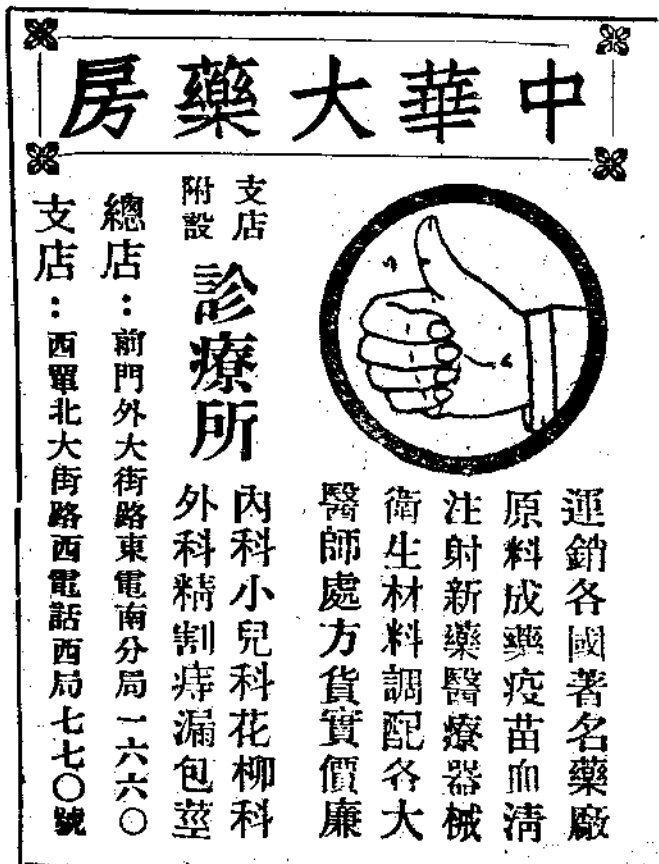 中華大藥房
運銷各國著名藥廠
原料成藥疫苗血清
注射新藥醫療器械
衛生材料調配各大
醫師處方貨實價廉
支店
附設
診療所
內科小兒科花柳科
外科精割痔漏包莖
總店：前門外大街路東電南分局一六六〇
支店：西單北大街路西電話西局七七〇號